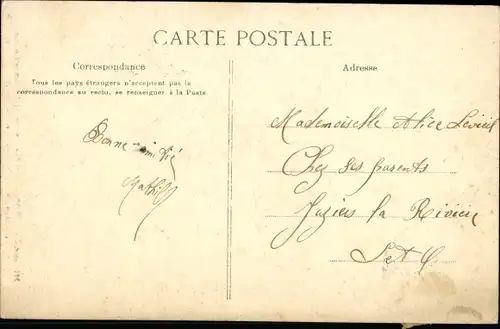 CARTE POSTALE
Correspondance
Tous les pays étrangers n'acceptent pas la
correspondance au recto, se renseigner à la Poste
Bonne amitié
Adresse
Mademoiselle Alice
Chez ses parents
Juziers la Rivière
S et O